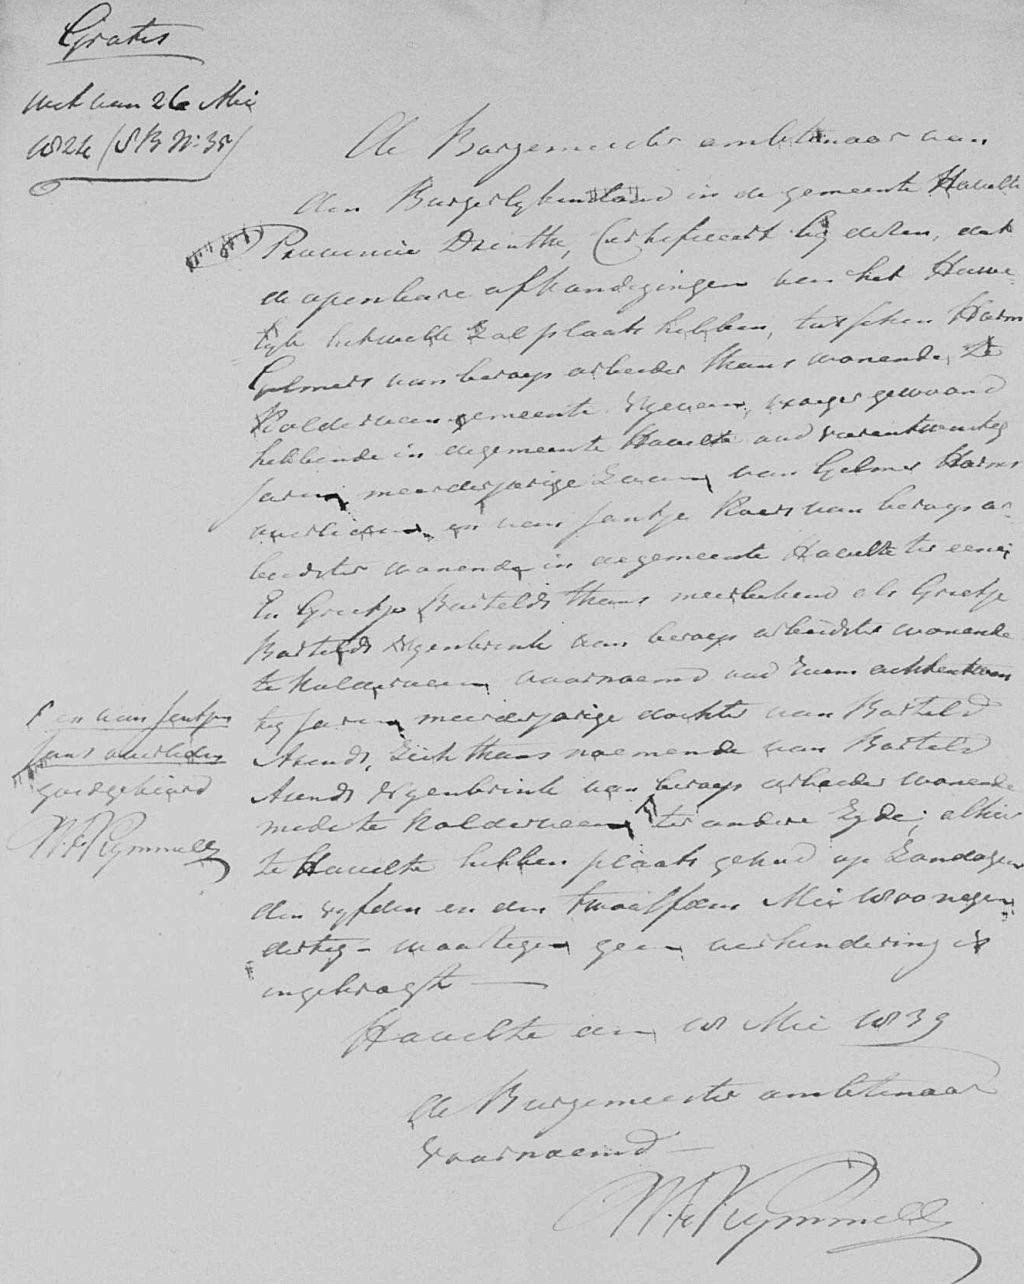 Gratis
wet van 26 Mei
1824 (SB N: 35)
de Burgemeester ambtenaar van
den Burgerlyken stand in de gemeente Havelte
Provincie Drenthe, Certificeert by dezen, dat
de openbare afkondigingen van het Huwe-
lyk hetwelk zal plaats hebben, tusschen Harm
Gelmers van beroep arbeider thans wonende te
Kolderveen gemeente Nyeveen, vroeger gewoond
hebbende in de gemeente Havelte oud vierentwintig
Jaren, meerderjarige Zoon van Gelmer Harms
overleden en van Jantje Roers van beroep ar-
beidster wonende in de gemeente Havelte ter eener
En Grietje Bartelds thans meerbekend als Grietje
Bartelds Nyenbrink van beroep arbeidster wonende
te Kolderveen voornoemd oud ruim achtentwin
tig Jaren, meerderjarige dochter van Barteld
Arends, zich thans noemende van Barteld
Arends Nyenbrink van beroep arbeider wonende
mede te Kolderveen ter andere Zyde; alhier
te Havelte hebben plaats gehad op Zondagen
den vyfden en den twaalfden Mei 1800 negen
dertig - waartegen geen verhindering is
ingebragt
Γ en van Jantjen
Jans overleden
goedgekeurd
W. F. Kymmell
Havelte den 18 Mei 1839
de Burgemeester ambtenaar
voornoemd
W. F. Kymmell